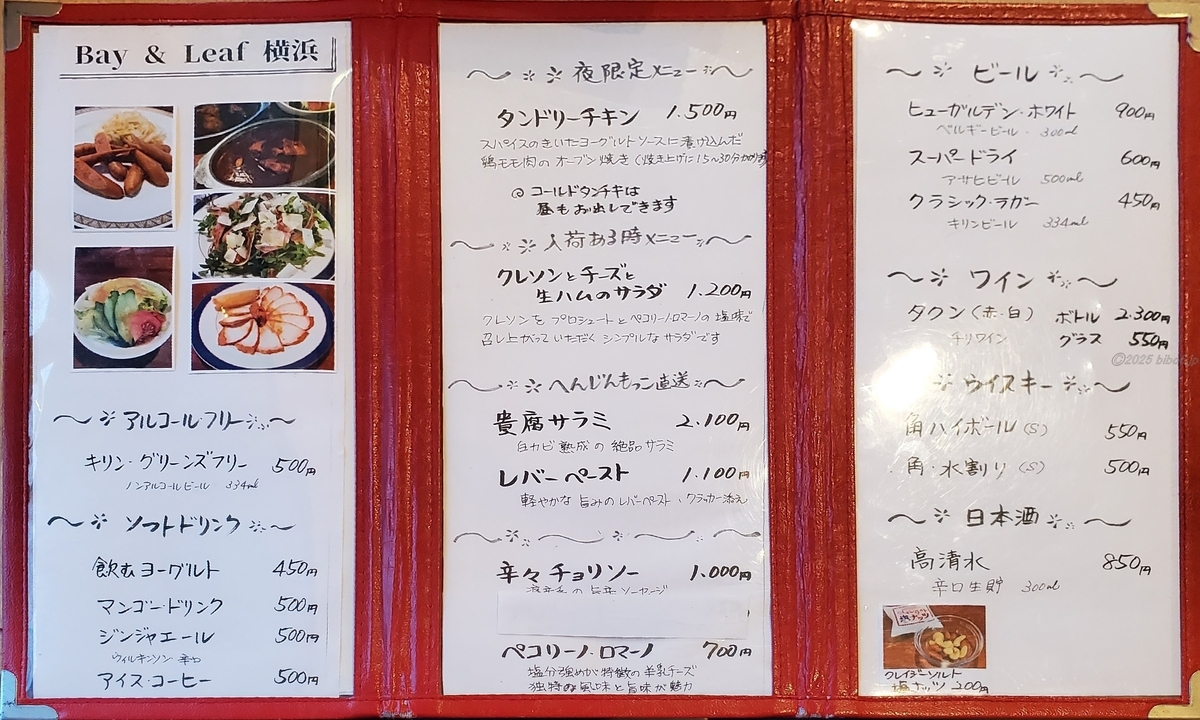 Bay & Leaf 横浜
アルコールフリー
キリン・グリーンズフリー 500円
ノンアルコールビール 334ml
ソフトドリンク
飲むヨーグルト 450円
マンゴードリンク 500円
ジンジャエール 500円
ウィルキンソン 辛口
アイス・コーヒー 500円
夜限定メニュー
タンドリーチキン 1.500円
スパイスのきいたヨーグルトソースに漬け込んだ
鶏モモ肉のオーブン焼き (焼き上げに15~30分かかります
@ コールドタンチキは
昼もお出しできます
入荷ある時メニュー
クレソンとチーズと
生ハムのサラダ 1.200円
クレソンを プロシュートとペコリーノロマーノの 塩味で
召し上がっていただく シンプルな サラダです
へんじんもっこ直送
貴腐サラミ 2.100円
白カビ熟成の 絶品サラミ
レバーペースト 1.100円
軽やかな 旨みのレバーペースト、クラッカー添え
辛々チョリソー 1.000円
ペコリーノ・ロマーノ 700円
塩分強めが特徴の羊乳チーズ
独特な風味と旨味が魅力
ビール
ヒューガルデン・ホワイト 900円
ベルギービール 300ml
スーパードライ 600円
アサヒビール 500ml
クラシック・ラガー 450円
キリンビール 334ml
ワイン
タクン (赤・白) ボトル 2.300円
チリワイン グラス 550円
©2025 bibo
ウイスキー
角ハイボール (S) 550円
角・水割り (S) 500円
日本酒
高清水 850円
辛口生貯 300ml
クレイジーソルト
塩ナッツ 200円